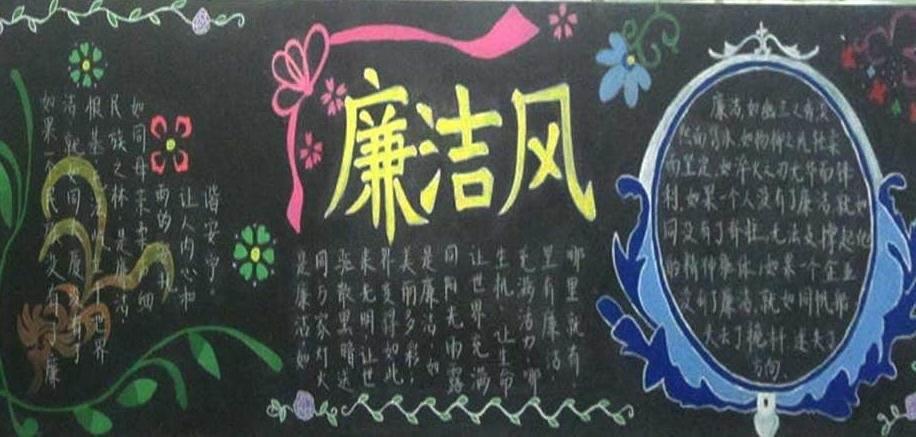 廉洁风
如果一民族没有了廉
洁就如同厦有了
根基世界
民族之林 是廉洁
如同母亲柔
雨的
让人内心和
谐安宁。
是廉洁如
同万家灯火
驱散黑暗送
来光明,让世
界变得如此
美丽多彩;
是廉洁 如
同阳光雨露
让世界充满
生机,让生命
充满活力 哪
里有廉洁,
哪里就有
廉洁,如幽兰之有
而坚定,如
利.如果一个人没有了廉洁,就如
同没有了脊柱,无法支撑起他
的精神躯体;如果一个企业
没有了廉洁,就如同帆船
失去了桅杆 迷失了
方向.